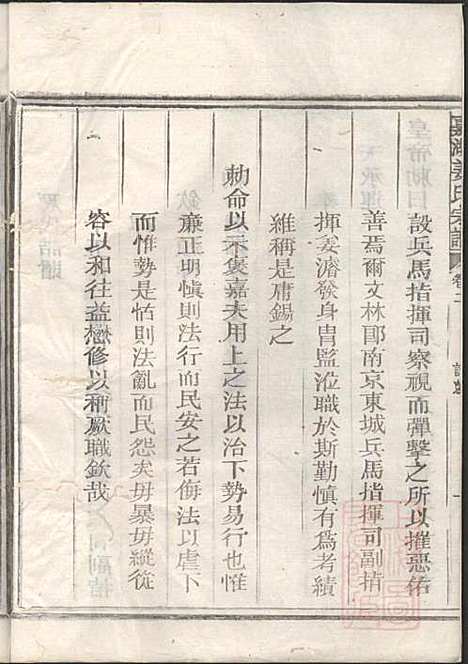 嘉湖姜氏宗譜
卷二
設兵馬指揮司察視而彈擊之所以摧惡佑
善焉爾文林郎南京東城兵馬指揮司副指
揮姜濬發身胄監涖職於斯勤慎有為考績
維稱是用錫之
勅命以示褒嘉夫用上之法以治下勢易行也惟
廉正明慎則法行而民安之若侮法以虐下
而惟勢是怙則法亂而民怨矣毋暴毋縱從
容以和往益懋修以稱厥職欽哉